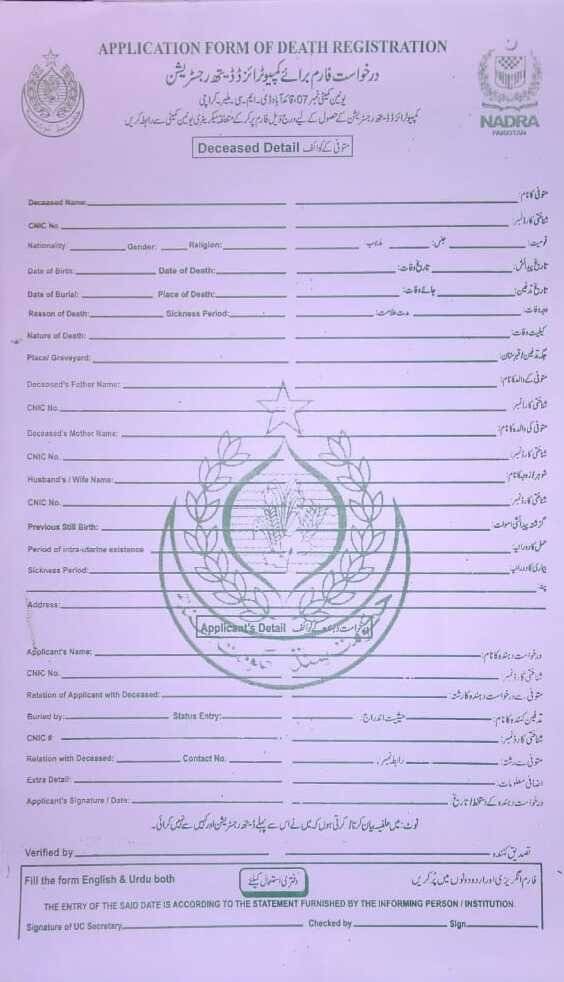 APPLICATION FORM OF DEATH REGISTRATION
درخواست فارم برائے کمپیوٹرائزڈ ڈیتھ رجسٹریشن
یونین کمیٹی نمبر 07، قائد آباد ڈی۔ایم۔سی۔ملیر۔کراچی
کمپیوٹرائزڈ ڈیتھ رجسٹریشن کے حصول کے لیے درج ذیل فارم پر کر کے متعلقہ سیکریٹری یونین کمیٹی سے رابطہ کریں
NADRA
PAKISTAN
Deceased Detail متوفی کے کوائف
Deceased Name: متوفی کا نام:
CNIC No. شناختی کارڈ نمبر:
Nationality: Gender: Religion: قومیت: جنس: مذہب:
Date of Birth: Date of Death: تاریخ پیدائش: تاریخ وفات:
Date of Burial: Place of Death: تاریخ تدفین: جائے وفات:
Reason of Death: Sickness Period: وجہ وفات: مدت علامت:
Nature of Death: کیفیت وفات:
Place/ Graveyard: جگہ تدفین/قبرستان:
Deceased's Father Name: متوفی کے والد کا نام:
CNIC No. شناختی کارڈ نمبر:
Deceased's Mother Name: متوفی کی والدہ کا نام:
CNIC No. شناختی کارڈ نمبر:
Husband's / Wife Name: شوہر/زوجہ کا نام:
CNIC No. شناختی کارڈ نمبر:
Previous Still Birth: گزشتہ پیدائشی اموات:
Period of intra-utarine existence حمل کا دورانیہ:
Sickness Period: بیماری کا دورانیہ:
Address: پتہ:
Applicant's Detail درخواست دہندہ کے کوائف
Applicant's Name: درخواست دہندہ کا نام:
CNIC No. شناختی کارڈ نمبر:
Relation of Applicant with Deceased: متوفی سے درخواست دہندہ کا رشتہ:
Buried by: Status Entry: تدفین کنندہ کا نام: حیثیت اندراج:
CNIC # شناختی کارڈ نمبر:
Relation with Deceased: Contact No. متوفی سے رشتہ: رابطہ نمبر:
Extra Detail: اضافی معلومات:
Applicant's Signature / Date: درخواست دہندہ کے دستخط/تاریخ:
نوٹ: میں حلفیہ بیان کرتا/کرتی ہوں کہ میں نے اس سے پہلے ڈیتھ رجسٹریشن اور کہیں سے نہیں کرائی۔
Verified by تصدیق کنندہ
Fill the form English & Urdu both دفتری استعمال کیلئے فارم انگریزی اور اردو دونوں میں پُر کریں
THE ENTRY OF THE SAID DATE IS ACCORDING TO THE STATEMENT FURNISHED BY THE INFORMING PERSON / INSTITUTION.
Signature of UC Secretary Checked by Sign